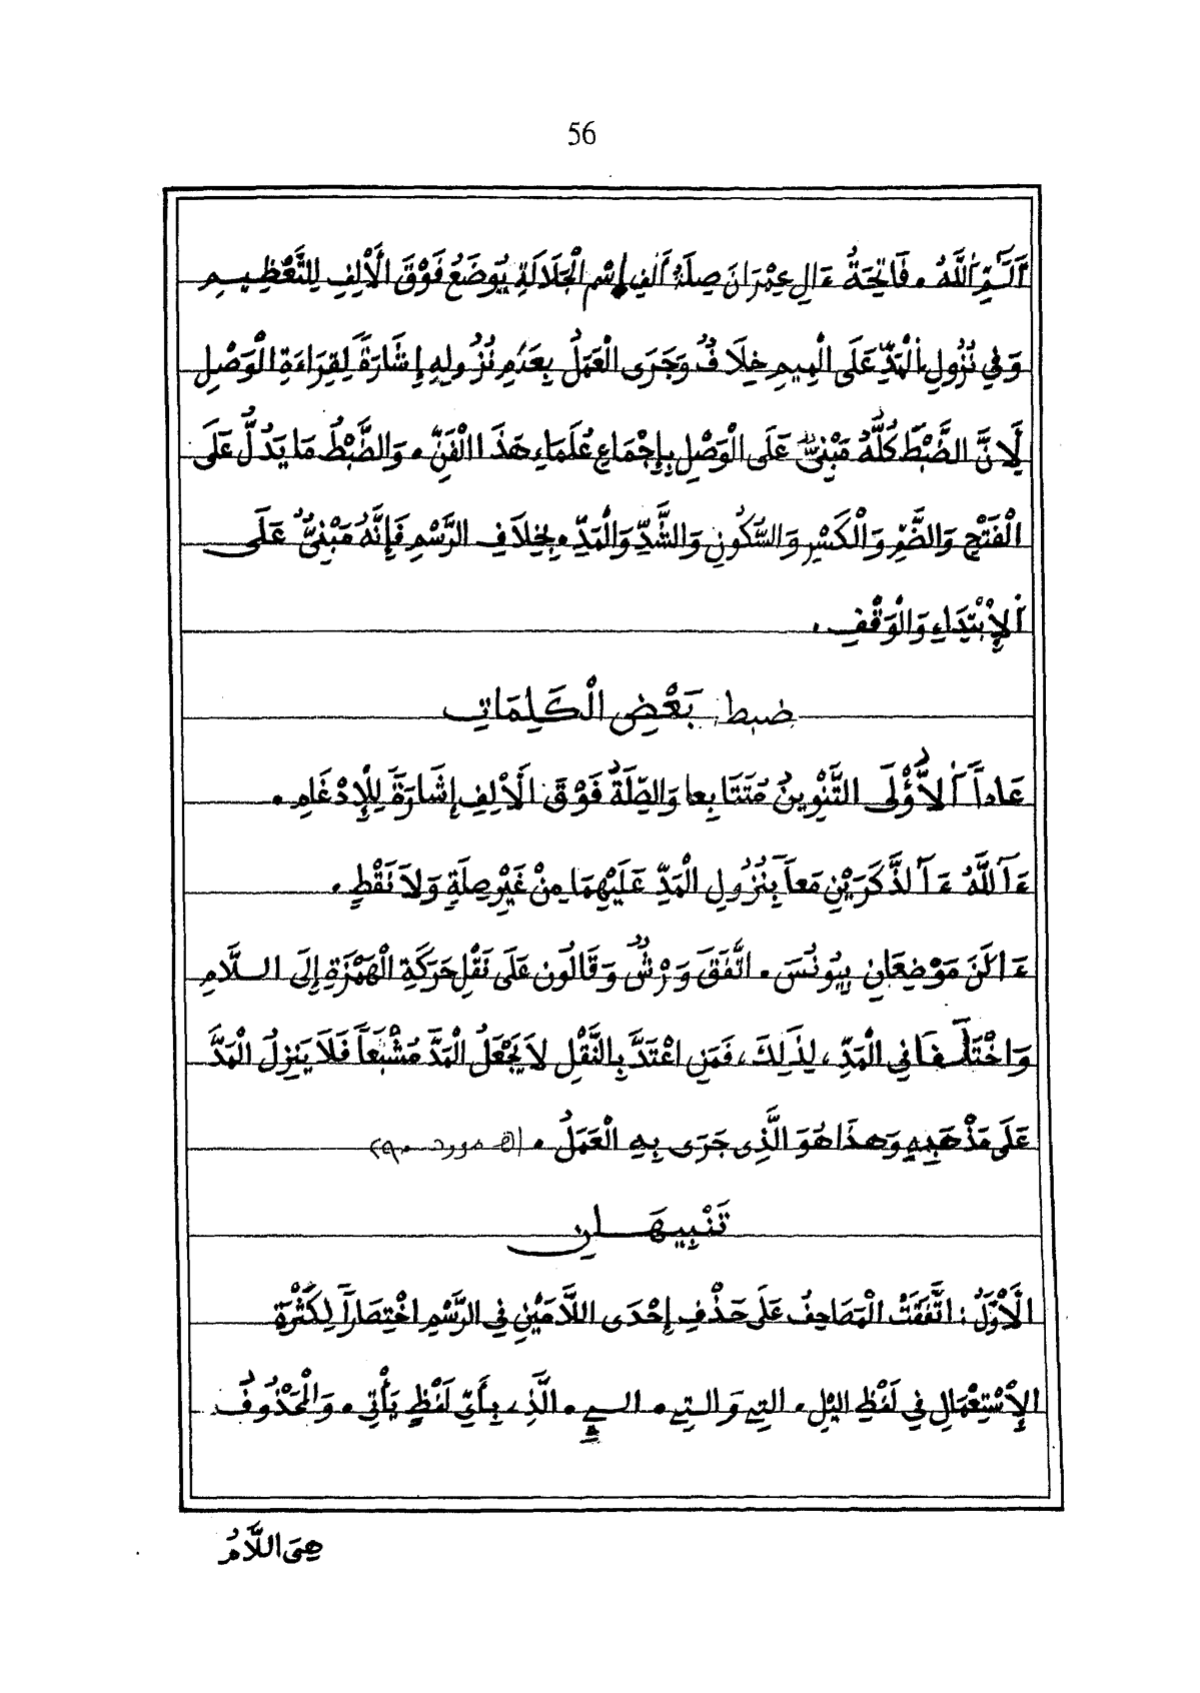 56
أَلَٓمِّٓ أَللَّهُ . فَاتِحَةُ ءَالِ عِمْرَانَ صِلَةُ أَلِفِ إِسْمِ الْجَلَالَةِ يُوضَعُ فَوْقَ الْأَلِفِ لِلتَّعْظِيمِ
وَفِي نُزُولِ الْمَدِّ عَلَى الْمِيمِ خِلَافٌ وَجَرَى الْعَمَلُ بِعَدَمِ نُزُولِهِ إِشَارَةً لِقِرَاءَةِ الْوَصْلِ
لِأَنَّ الضَّبْطَ كُلَّهُ مَبْنِيٌّ عَلَى الْوَصْلِ بِإِجْمَاعِ عُلَمَاءِ هَذَا الْفَنِّ . وَالضَّبْطُ مَا يَدُلُّ عَلَى
الْفَتْحِ وَالضَّمِّ وَالْكَسْرِ وَالسُّكُونِ وَالشَّدِّ وَالْمَدِّ . بِخِلَافِ الرَّسْمِ فَإِنَّهُ مَبْنِيٌّ عَلَى
الْإِبْتِدَاءِ وَالْوَقْفِ .
ضبط: بَعْضِ الْكَلِمَاتِ
عَاداً أَلاُّولَى التَّنْوِينُ مُتَتَابِعا وَالصِّلَةُ فَوْقَ الْأَلِفِ إِشَارَةً لِلْإِدْغَامِ .
ءَآللَّهُ ءَآلذَّكَرَيْنِ مَعاً بِنُزُولِ الْمَدِّ عَلَيْهِمَا مِنْ غَيْرِ صِلَةٍ وَلَا نَقْطٍ .
ءَالَنَ مَوْضِعَانِ بِيُونُسَ . اتَّفَقَ وَرْشٌ وَقَالُون عَلَى نَقْلِ حَرَكَةِ الْهَمْزَةِ إِلَى اللَّامِ
وَاخْتَلَفَا فِي الْمَدِّ ، لِذَلِكَ ، فَمَنِ اعْتَدَّ بِالنَّقْلِ لَا يَجْعَلُ الْمَدَّ مُشْبَعاً فَلَا يَنْزِلُ الْمَدَّ
عَلَى مَذْهَبِهِ وَهَذَا هُوَ الَّذِي جَرَى بِهِ الْعَمَلُ . (اهـ مورد ٩٠)
تَنْبِيهَانِ
الْأَوَّلُ : اتَّفَقَتْ الْمَصَاحِفُ عَلَى حَذْفِ إِحْدَى اللَّامَيْنِ فِي الرَّسْمِ اخْتِصَاراً لِكَثْرَةِ
الْإِسْتِعْمَالِ فِي لَفْظِ اليْلِ . التِے وَالتِے . الےِ . الَّذِ ، بِأَيِّ لَفْظٍ يَأْتِي . وَالْمَحْذُوفُ
هِيَ اللَّامُ